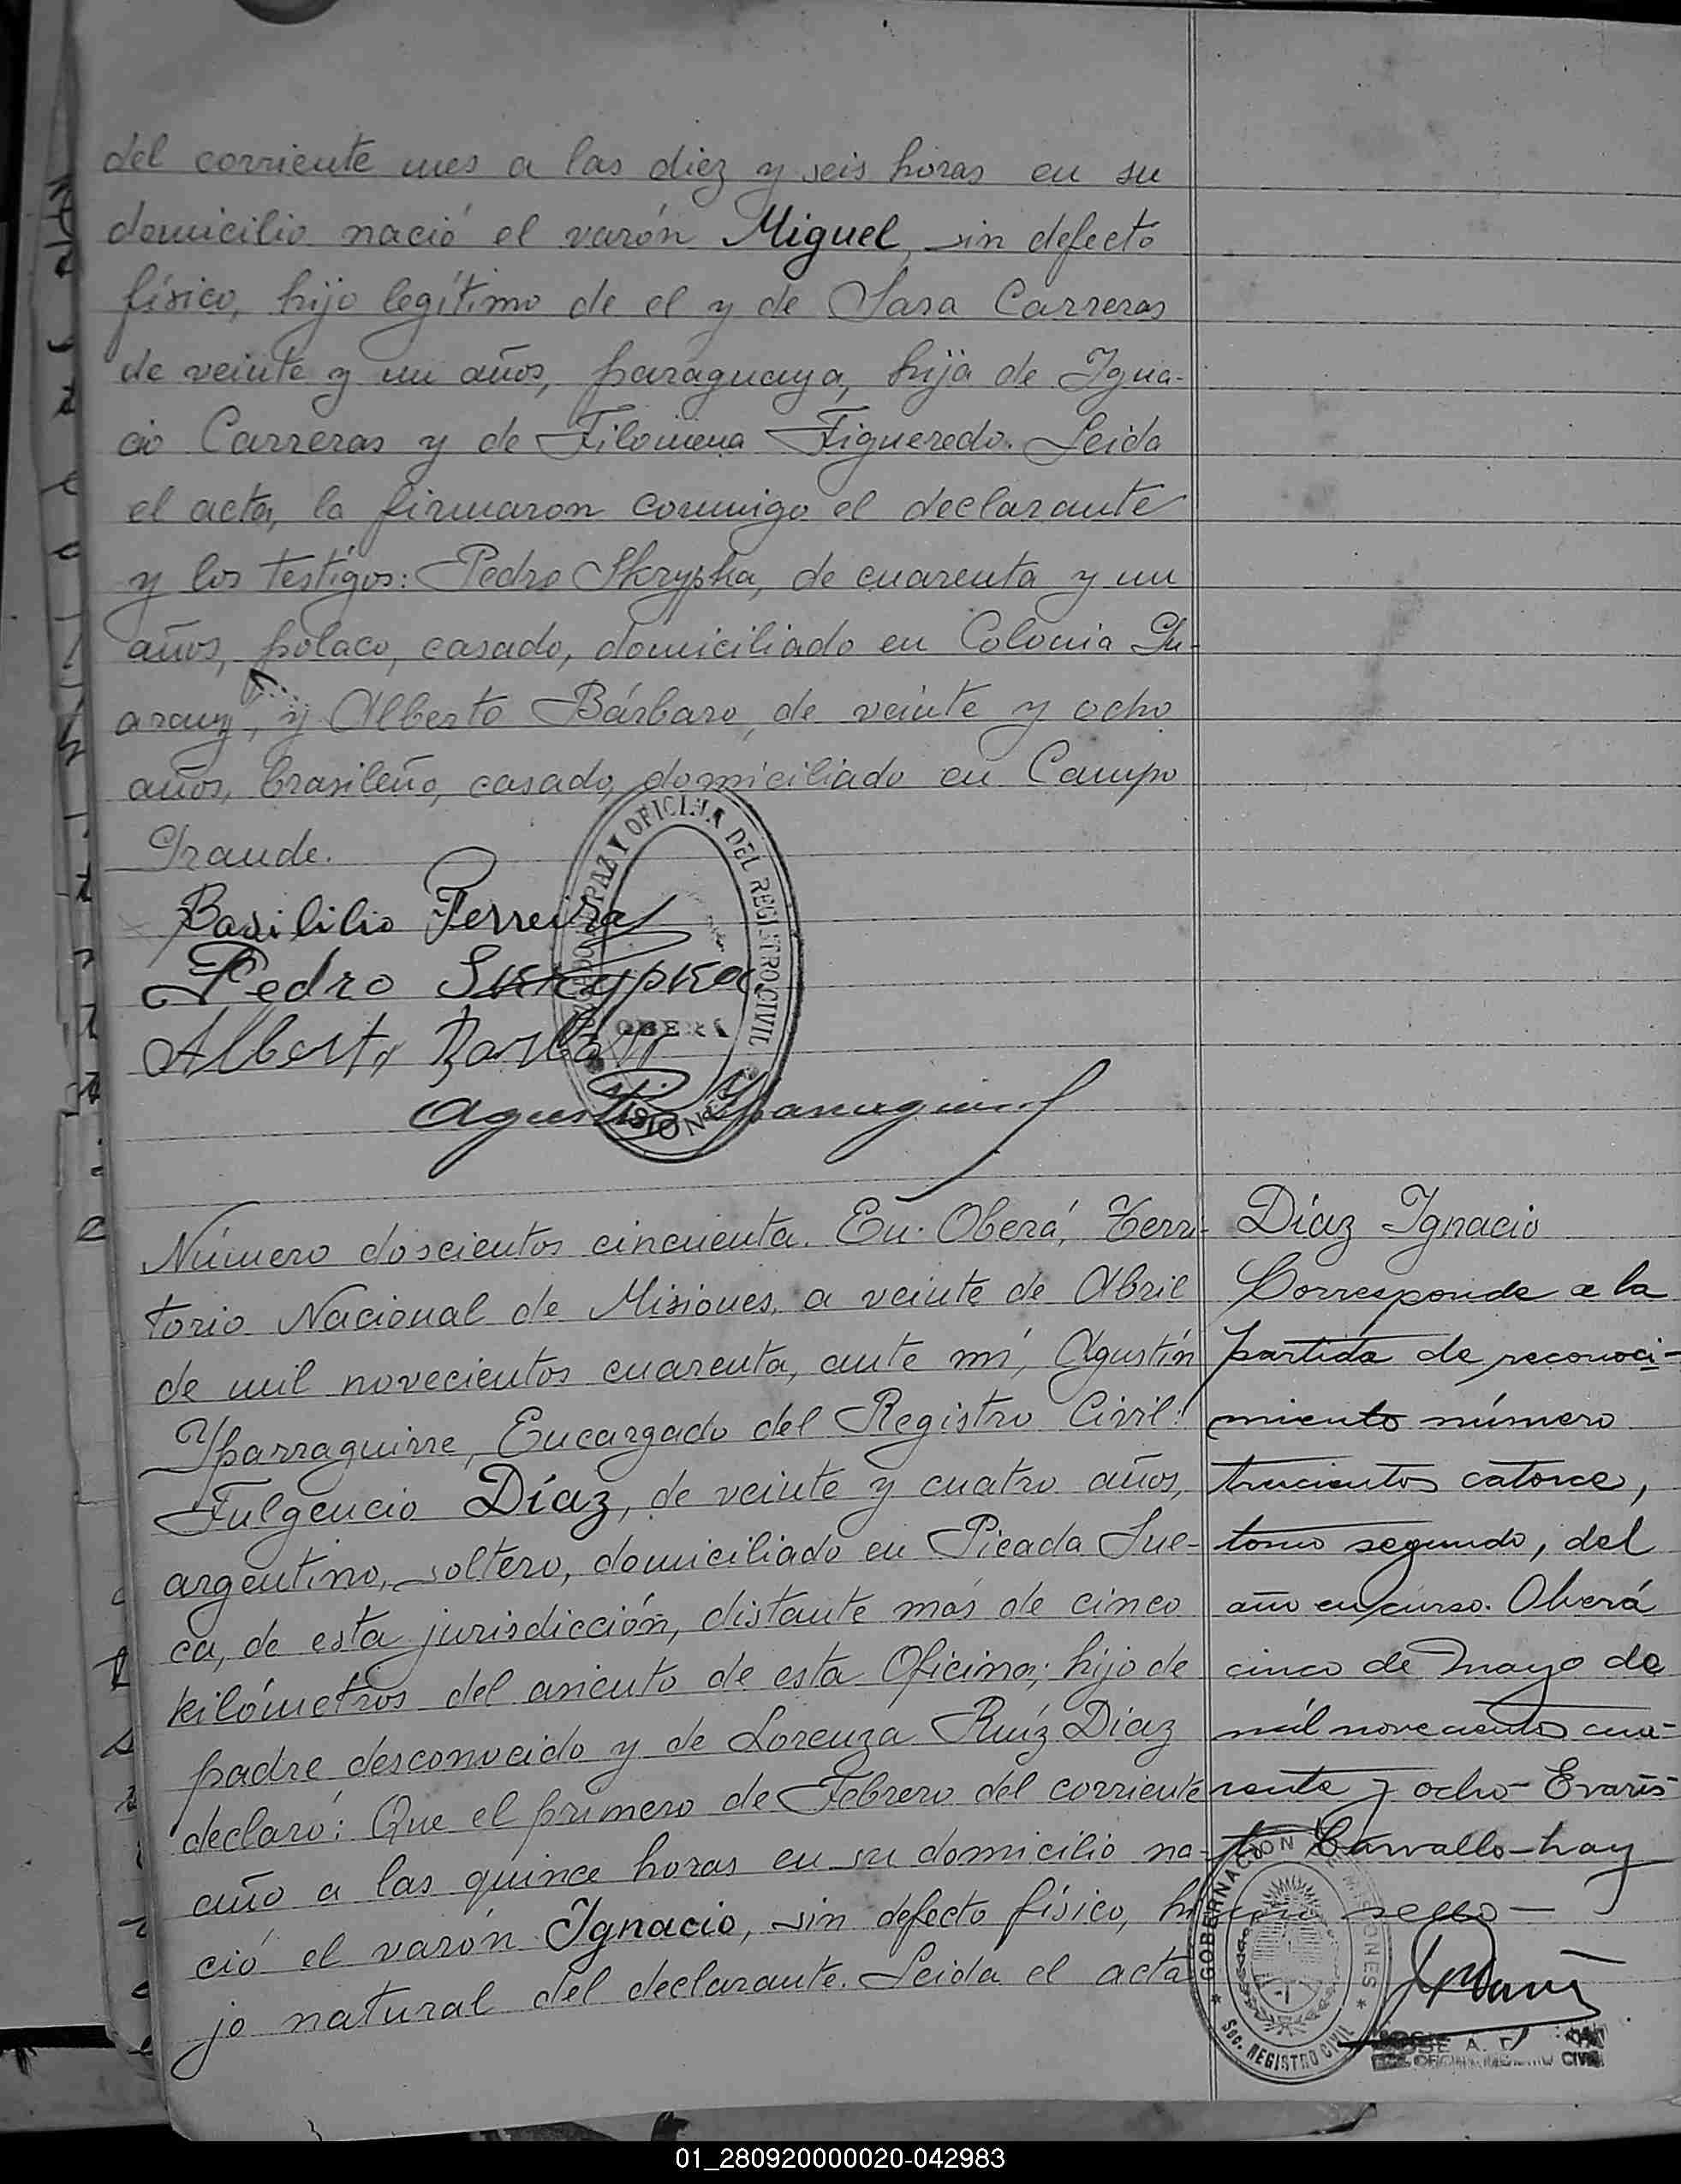 del corriente mes a las diez y seis horas en su
domicilio nació el varón Miguel, sin defecto
físico, hijo legítimo de el y de Sara Carreras
de veinte y un años, paraguaya, hija de Igna-
cio Carreras y de Filomena Figueredo. Leida
el acta, la firmaron conmigo el declarante
y los testigos: Pedro Skrypka, de cuarenta y un
años, polaco, casado, domiciliado en Colonia Gu-
arany, y Alberto Bárbaro, de veinte y ocho
años, brasileño, casado, domiciliado en Campo
Grande.
Basililio Ferreira
Pedro Skrypka
Alberto
Agustín Yparraguirre
PAZ Y OFICINA DEL REGISTRO CIVIL
OBERÁ
MISIONES
Número doscientos cincuenta. En Oberá, Terri-
torio Nacional de Misiones, a veinte de Abril
de mil novecientos cuarenta, ante mí, Agustín
Yparraguirre, Encargado del Registro Civil:
Fulgencio Díaz, de veinte y cuatro años,
argentino, soltero, domiciliado en Picada Sue-
ca, de esta jurisdicción, distante más de cinco
kilómetros del asiento de esta Oficina; hijo de
padre desconocido y de Lorenza Ruíz Díaz
declaró: Que el primero de Febrero del corriente
año a las quince horas en su domicilio na-
ció el varón Ignacio, sin defecto físico, hi
jo natural del declarante. Leida el acta
Díaz Ignacio
Corresponde a la
partida de reconoci-
miento número
trescientos catorce,
tomo segundo, del
año en curso. Oberá
cinco de Mayo de
mil novecientos cua-
renta y ocho - Evaris-
to Carvallo - hay
un sello -
GOBERNACION DE MISIONES
Sec. REGISTRO CIVIL
JOSE A.
CIVIL
01_280920000020-042983